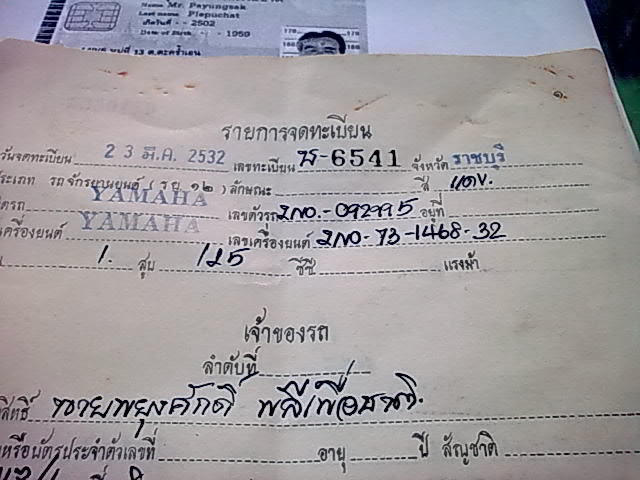 Name Mr. Payungsak
Last name Plepuchat
เกิดวันที่ - - 2502
Date of Birth - - 1959
๑
รายการจดทะเบียน
วันจดทะเบียน 23 มี.ค. 2532 เลขทะเบียน 6541 จังหวัด ราชบุรี
ประเภท รถจักรยานยนต์ (รย ๑๒) ลักษณะ สี แดง
YAMAHA เลขตัวรถ 2N0.-092995 อยู่ที่
เครื่องยนต์ YAMAHA เลขเครื่องยนต์ 2N0-73-1468-32
1. สูบ 125 ซีซี แรงม้า
เจ้าของรถ
ลำดับที่
นายพยุงศักดิ์
หรือบัตรประจำตัวเลขที่ อายุ ปี สัญชาติ